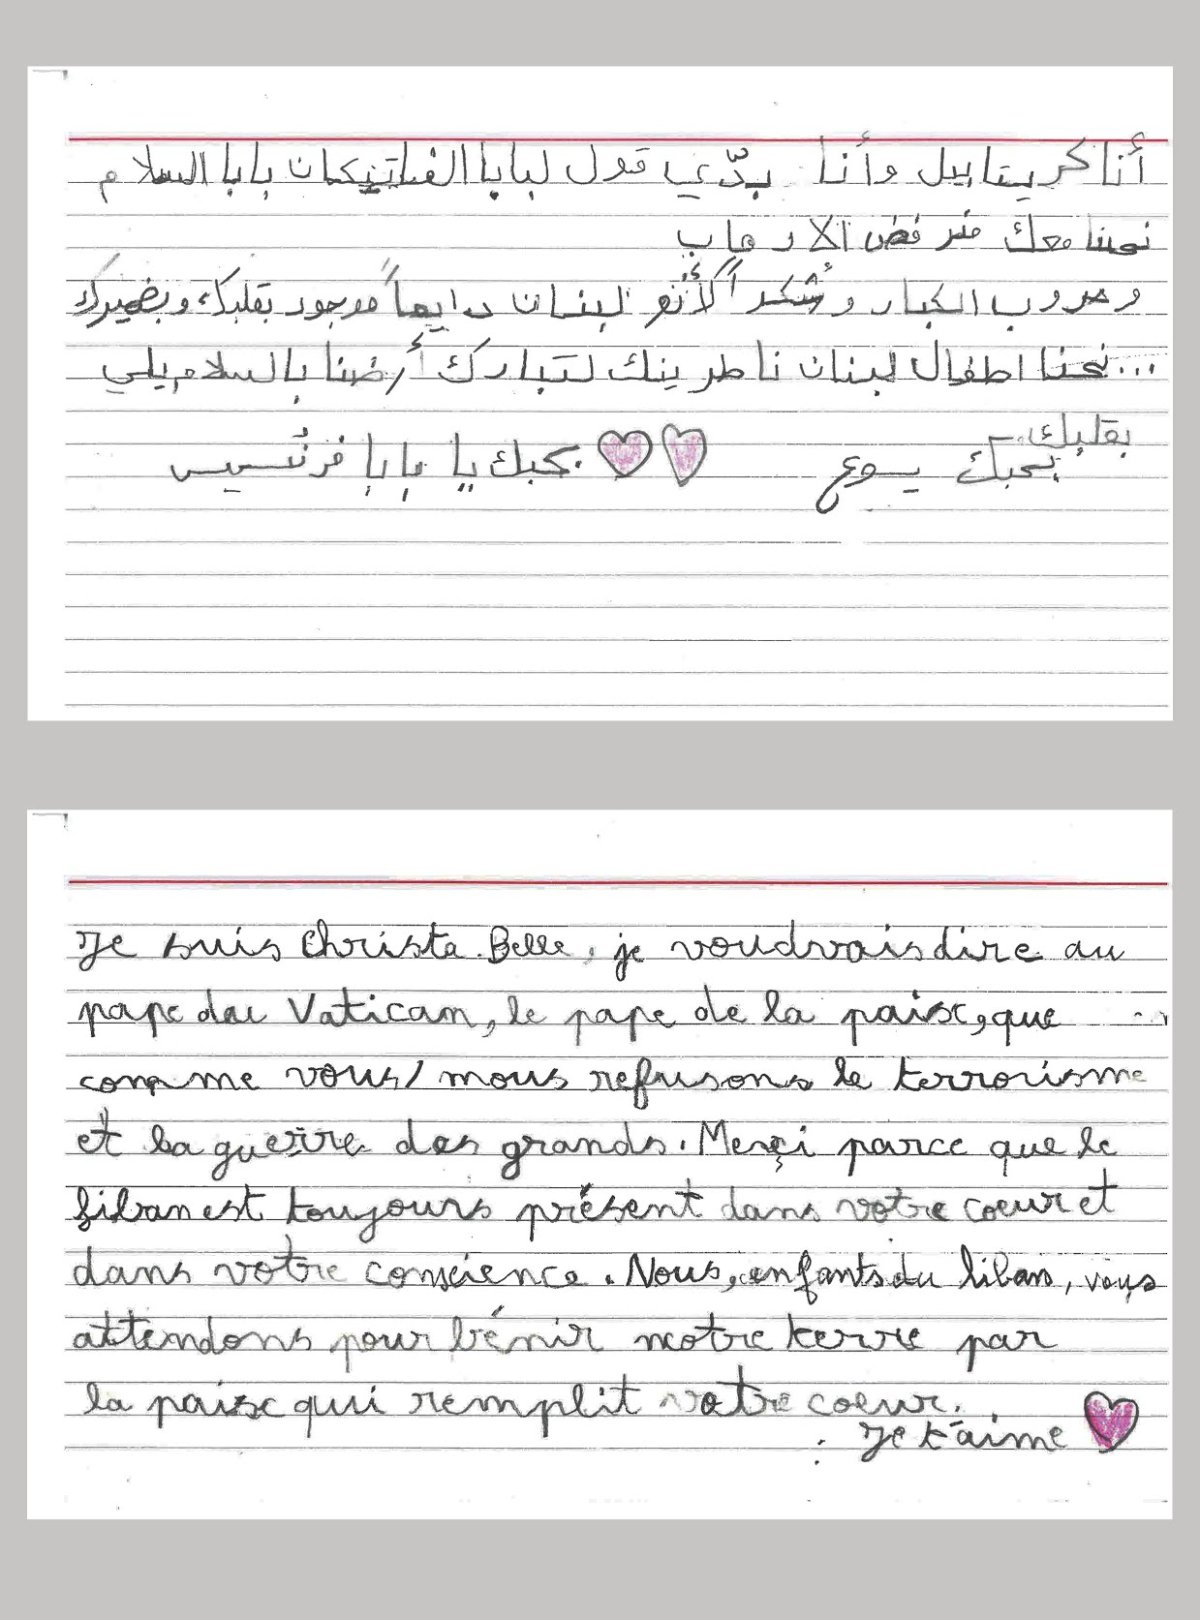 أنا كريستابيل وأنا بدّي قول لبابا الفاتيكان بابا السلام
نحنا معك منرفض الارهاب
وحروب الكبار وشكراً لأنو لبنان دايماً موجود بقلبك وبضميرك
...نحنا اطفال لبنان ناطرينك لتبارك أرضنا بالسلام يلي
بقلبك.
بحبك يسوع بحبك يا بابا فرنسيس
Je suis Christa Belle, je voudrais dire au
pape du Vatican, le pape de la paix, que
comme vous/ nous refusons le terrorisme
et la guerre des grands. Merçi parce que le
liban est toujours présent dans votre coeur et
dans votre conscience. Nous, enfants du liban, vous
attendons pour bénir notre terre par
la paix qui remplit votre coeur.
Je t'aime